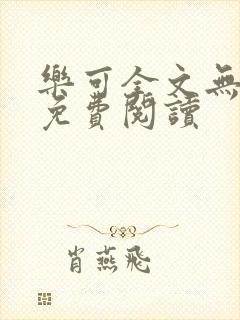 樂可全文無
免費閱讀
肖燕飛